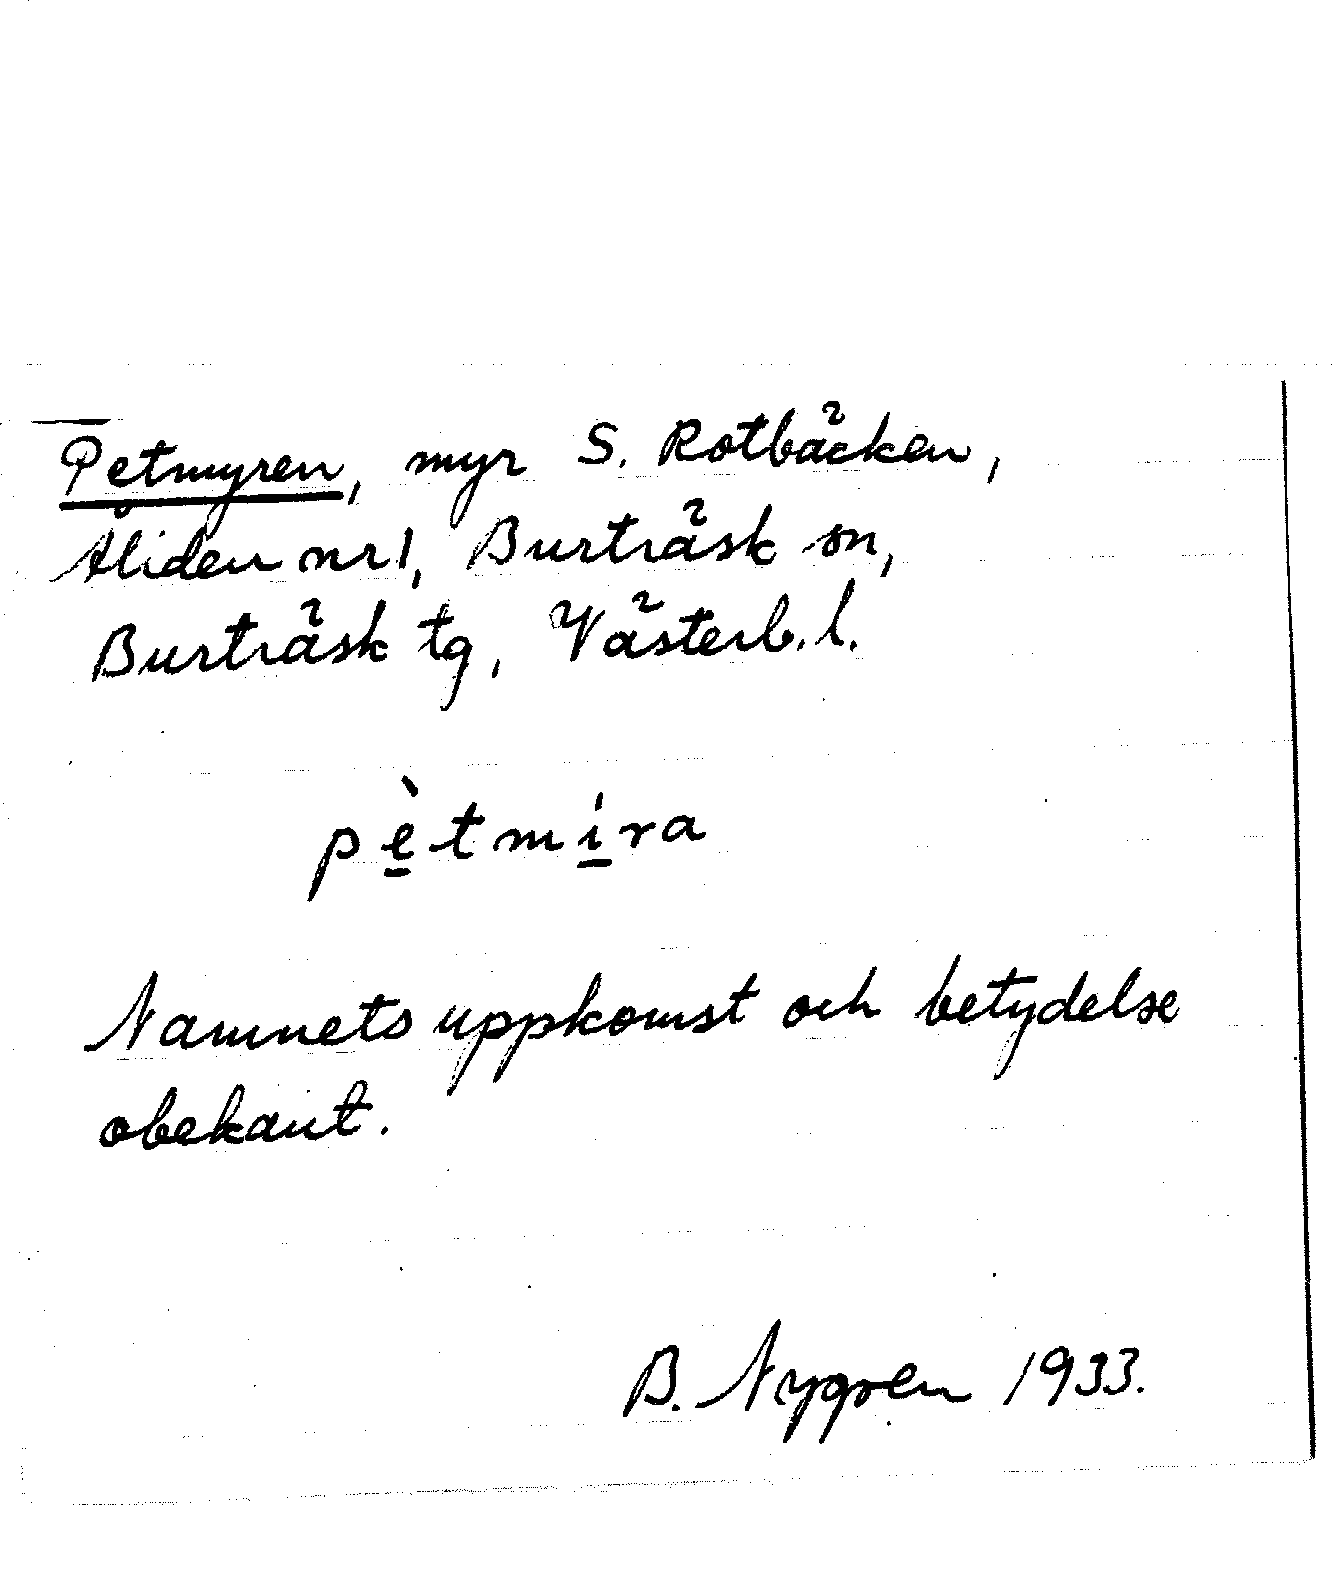 Petmyren, myr S. Rotbäcken,
Åliden nr 1, Burträsk sn,
Burträsk tg, Västerb. l.
pè̱tmi̱ra
Namnets uppkomst och betydelse
obekant.
B. Nygren 1933.